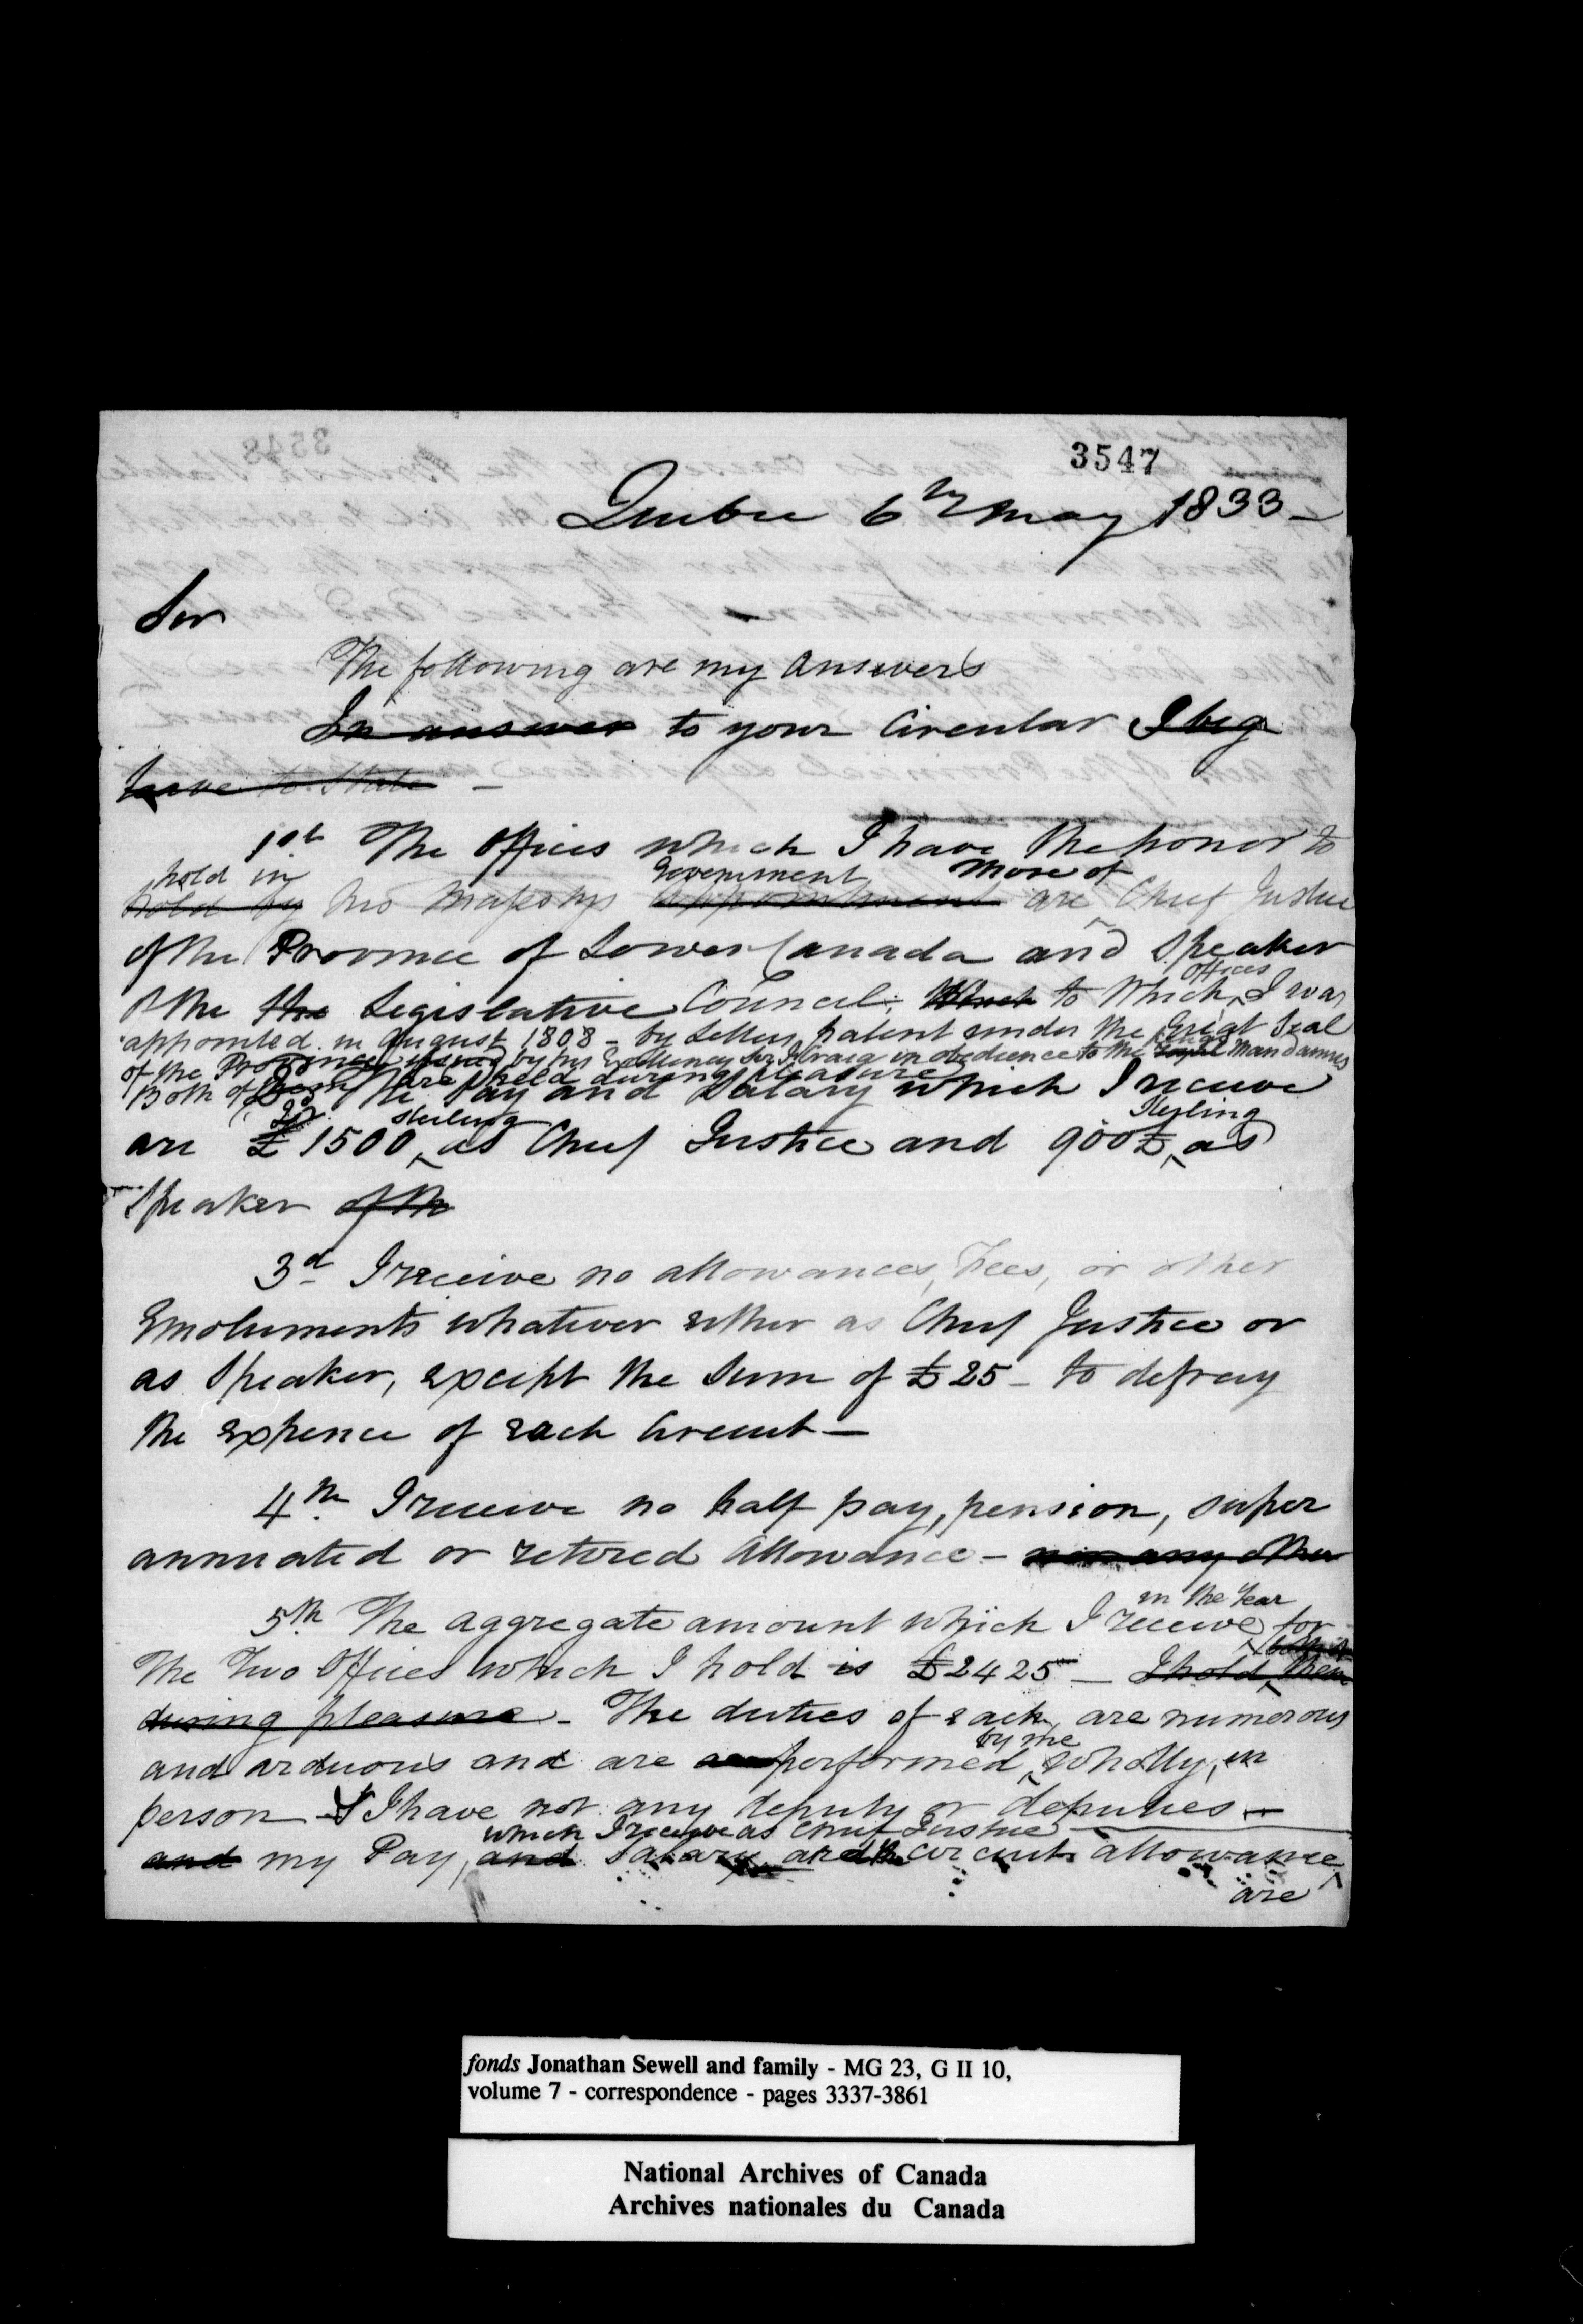 3547
Quebec 6th May 1833 –
Sir
The following are my answers
In answer to your Circular I beg
leave to State –
1st The Offices which I have the honor to
hold in Government those of
hold by his Majestys appointment are Chief Justice
of the Province of Lower Canada and Speaker
offices
of the the Legislative Council. Which to Which I was
appointed in August 1808 – by Letters patent under the Great Seal
of the Province issued by his Excellency Sir J. Craig in obedience to the Mandamus
Both of these are held during pleasure
2d The Pay and Salary which I receive
sterling Sterling
are £1500 as Chief Justice and 900£ as
Speaker of th
3d I receive no allowances, Fees, or other
Emoluments whatever either as Chief Justice or
as Speaker, except the Sum of £25 – to defray
the expence of each Circuit –
4th I receive no half pay, pension, super
annuated or retired Allowance – nor any other
in the Year
5th The aggregate amount which I receive for
The Two Offices which I hold is £2425 – I hold them
during pleasure – The duties of each are numerous
by me
and arduous and are performed Wholly in
person I have not any deputy or deputies –
which I receive as Chief Justice
and my Pay, and Salary and circuit allowance
are
fonds Jonathan Sewell and family - MG 23, G II 10,
volume 7 - correspondence - pages 3337-3861
National Archives of Canada
Archives nationales du Canada